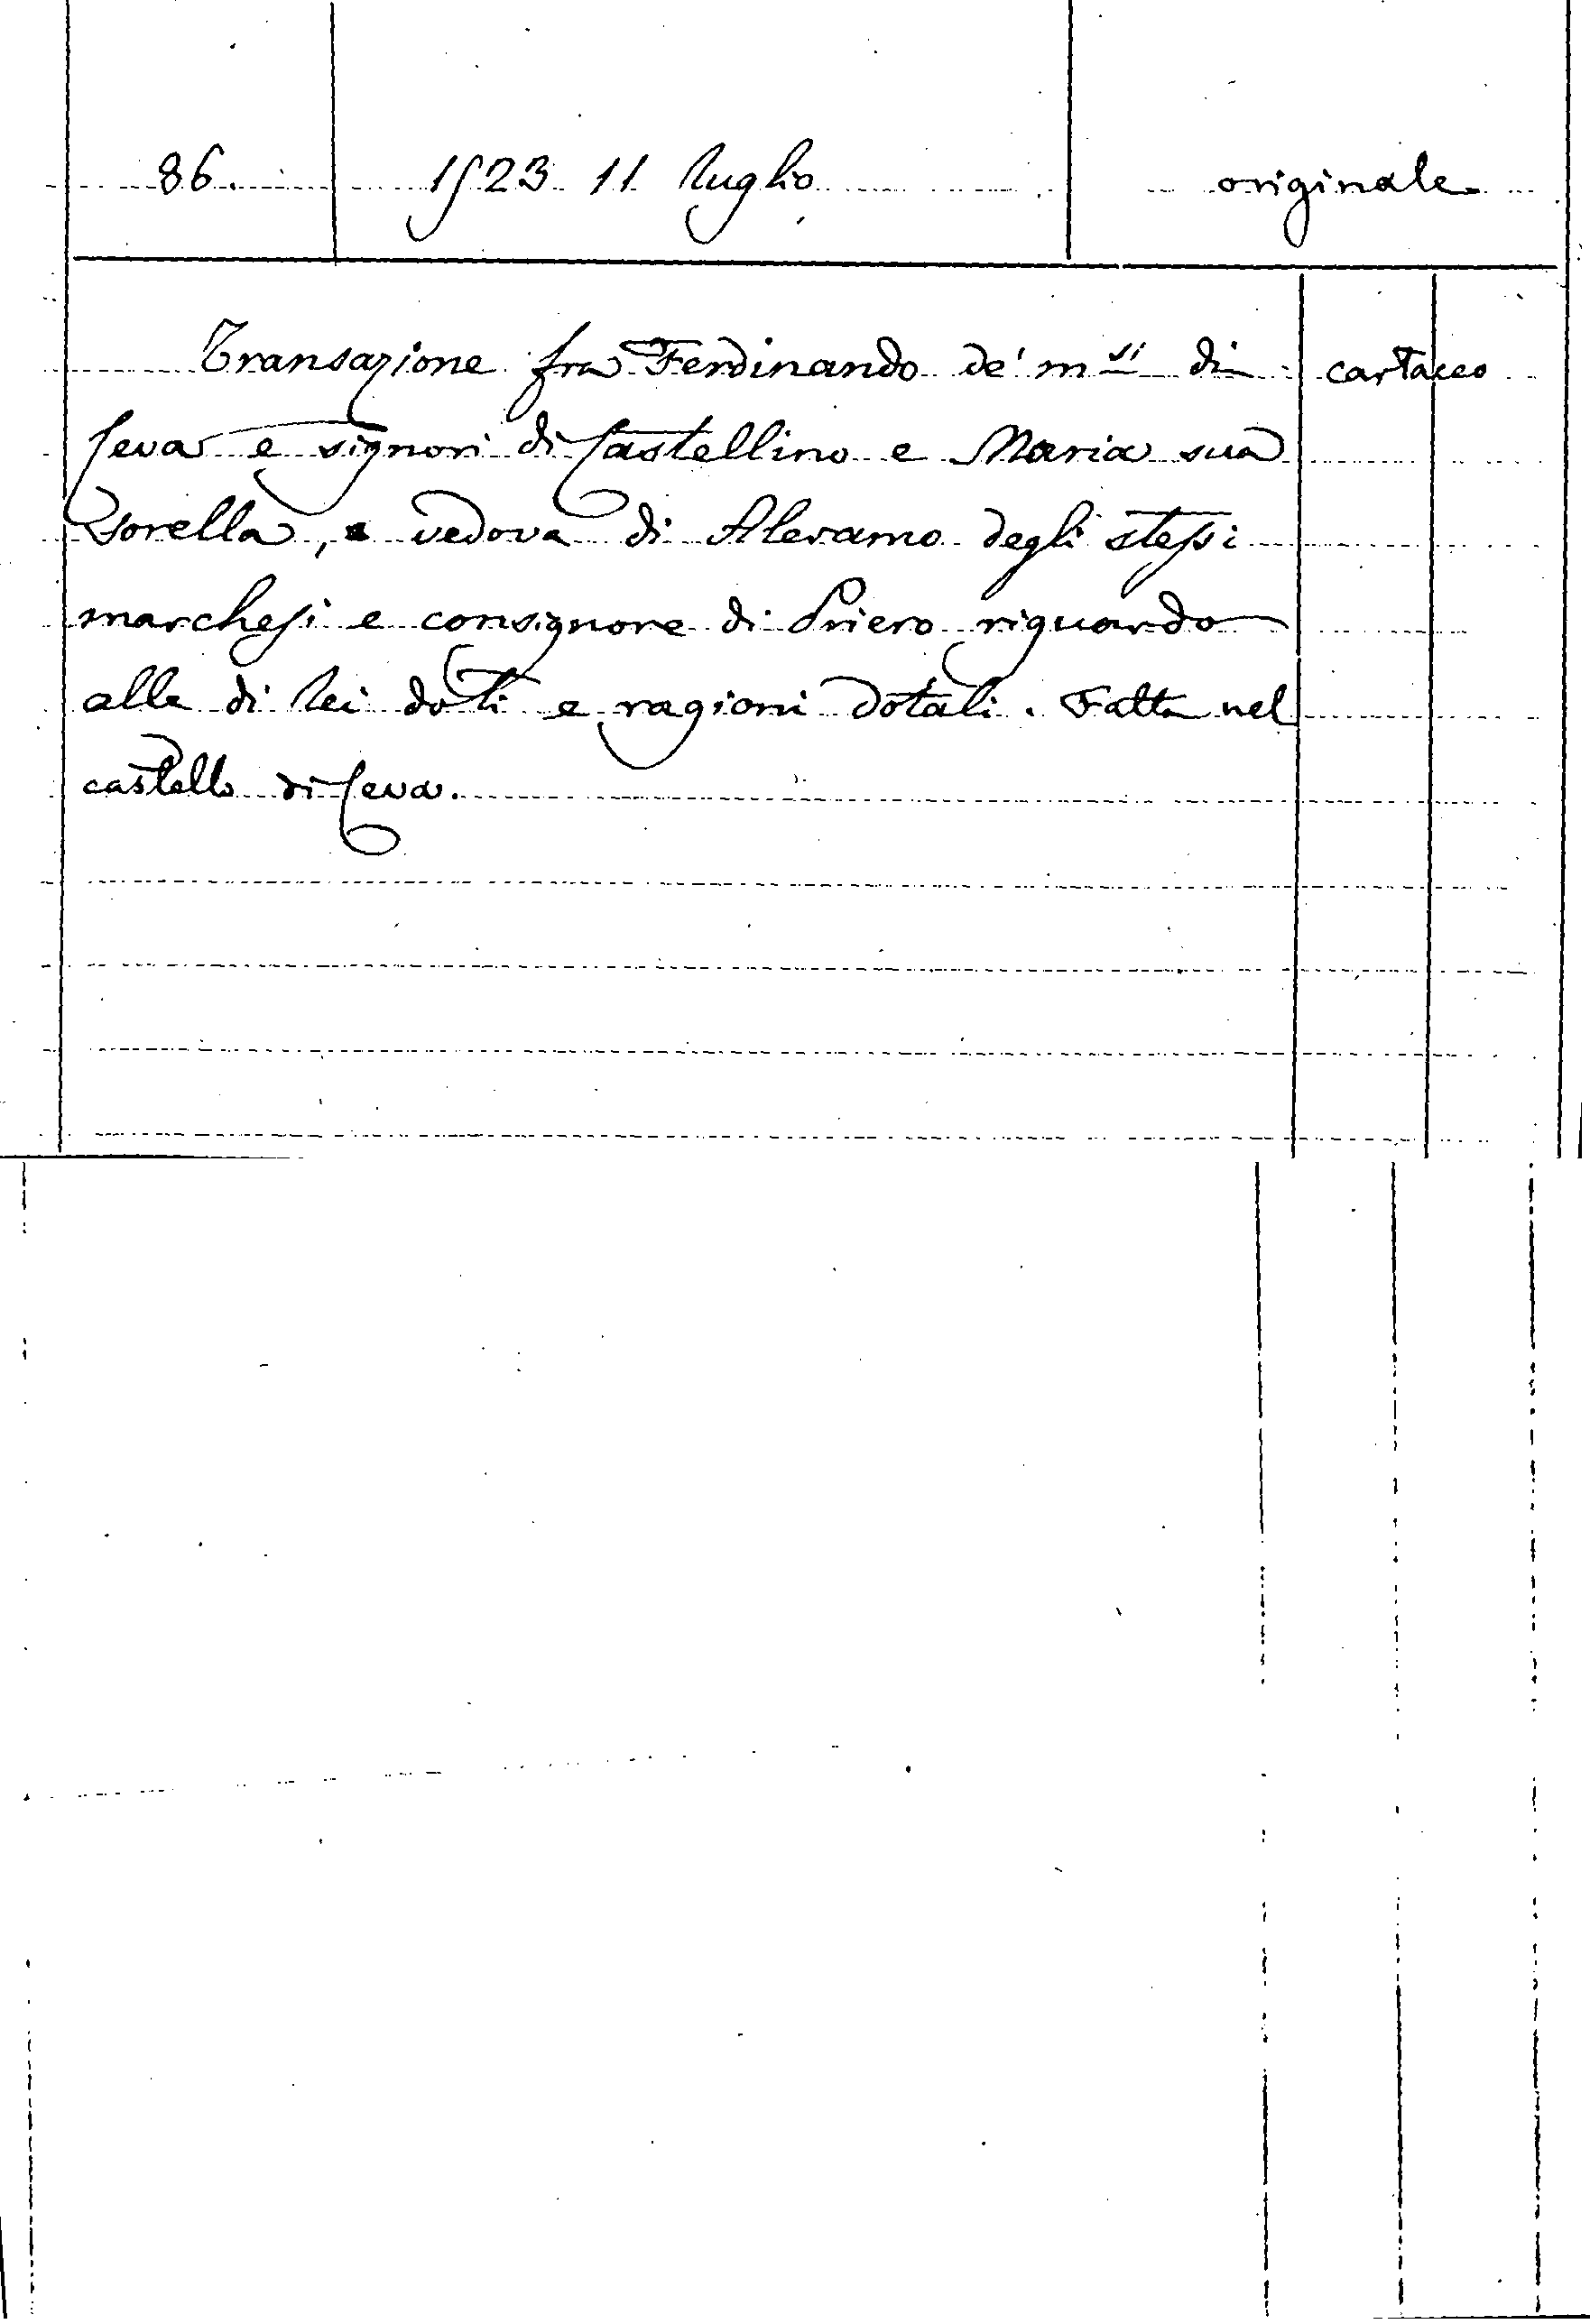 86. 1523 11 luglio originale
Transazione fra Ferdinando de' m.si di cartaceo
Ceva e signori di Castellino e Maria sua
sorella, vedova di Aleramo degli stessi
marchesi e consignore di Priero riguardo
alle di lei doti e ragioni dotali. Fatta nel
castello di Ceva.